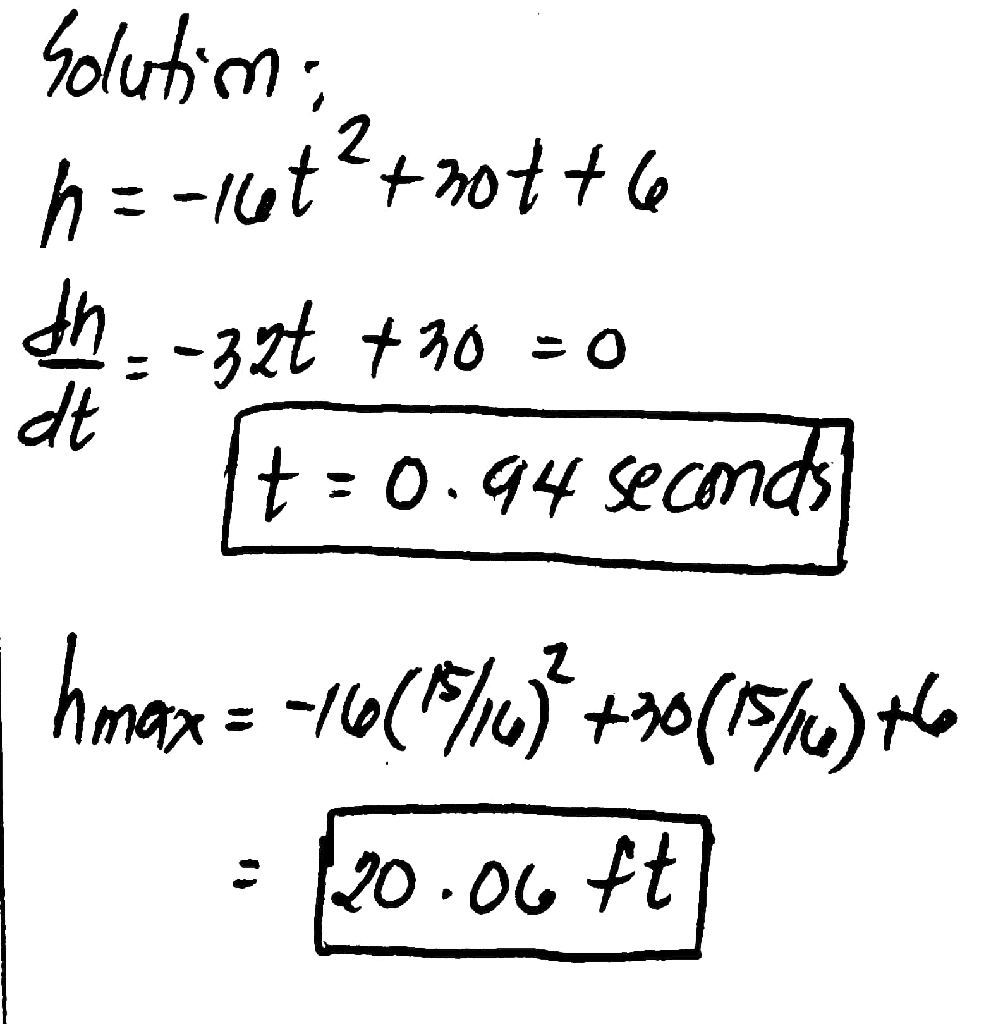 Solution:
h = -16t² + 30t + 6
dh/dt = -32t + 30 = 0
t = 0.94 seconds
hmax = -16(15/16)² + 30(15/16) + 6
= 20.06 ft